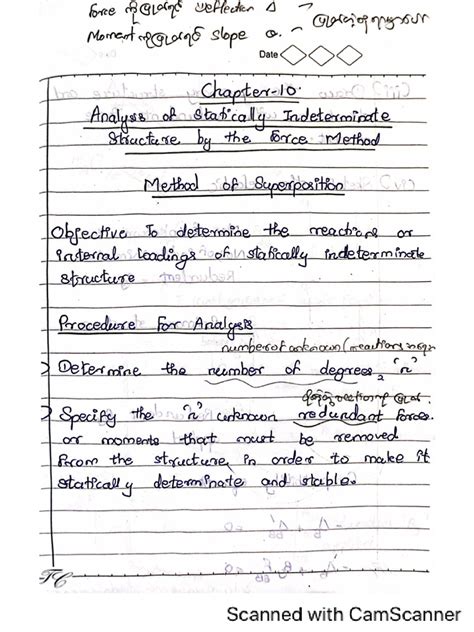 Force
deflection Δ
Moment
slope θ.
Date
Chapter-10.
Analysis of Statically Indeterminate
Structure by the Force Method
Method of Superposition
Objective To determine the reactions or
internal loadings of statically indeterminate
structure
Procedure For Analysis
number of unknown (reactions
① Determine the number of degrees, "n"
Specify the "n" unknown redundant forces.
or moments that must be removed
From the structure, in order to make it
statically determinate and stable.
TC
Scanned with CamScanner